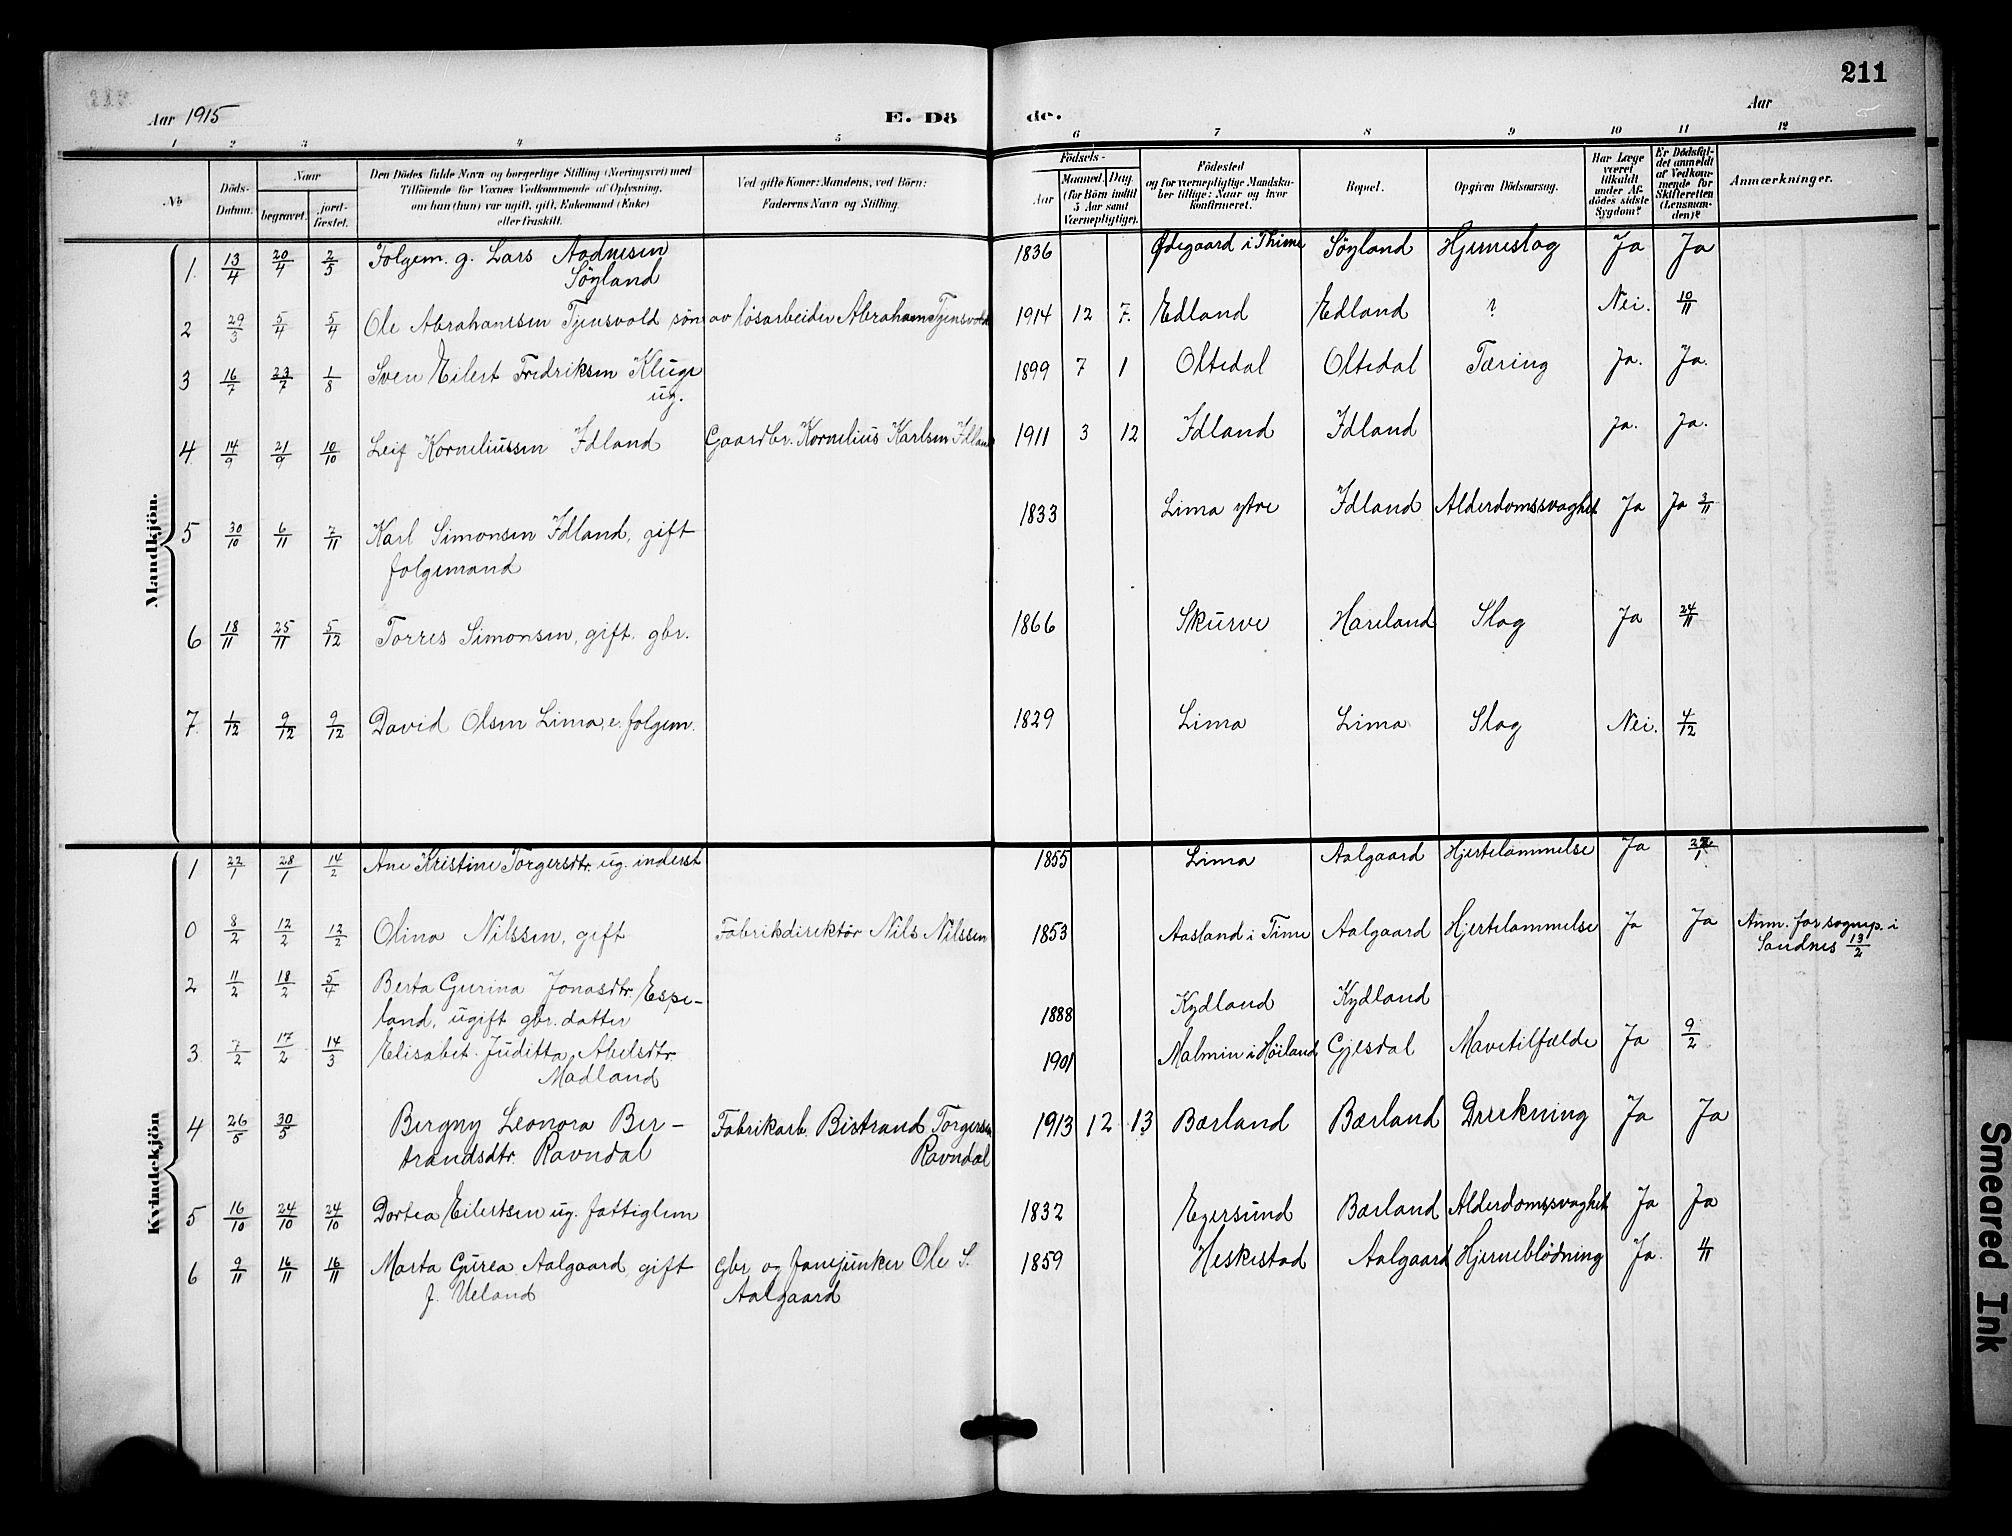 211
Aar 1915
E. Dö
de.
Aar
1 2 3 4 5 6 7 8 9 10 11 12
No
Döds-
Datum.
Naar
begravet.
jord-
fæstet.
Den Dödes fulde Navn og borgerlige Stilling (Næringsvei) med
Tilföiende for Voxnes Vedkommende af Oplysning,
om han (hun) var ugift, gift, Enkemand (Enke)
eller fraskilt.
Ved gifte Koner: Mandens, ved Börn:
Faderens Navn og Stilling.
Födsels-
Aar
Maaned. Dag.
(for Börn indtil
5 Aar samt
Værnepligtige).
Födested
og for værnepligtige Mandska-
ber tillige: Naar og hvor
konfirmeret.
Bopæl.
Opgiven Dödsaarsag.
Har Læge
været
tilkaldt
under Af-
dödes sidste
Sygdom?
Er Dödsfal-
det anmeldt
af Vedkom-
mende for
Skifteretten
(Lensman-
den)?
Anmærkninger.
Mandkjön.
1. 13/4 20/4 2/5 Folgem. g. Lars Aadnesen 1836 Ødegaard i Thime Söyland Hjerneslag Ja Ja
Söyland
2 29/3 5/4 5/4 Ole Abrahamsen Tjensvold sön av lösarbeider Abraham Tjensvold 1914 12 7. Edland Edland ? Nei. 10/11
3 16/7 23/7 1/8 Sven Eilert Fredriksen Kluge 1899 7 1 Oltedal Oltedal Tæring Ja. Ja.
ug.
4. 14/9 21/9 10/10 Leif Korneliussen Idland Gaardbr. Kornelius Karlsen Idland 1911 3 12 Idland Idland Ja. Ja.
5 30/10 6/11 7/11 Karl Simonsen Idland, gift 1833 Lima ytre Idland Alderdomssvaghet Ja Ja 3/11
folgemand
6 18/11 25/11 5/12 Torres Simonsen, gift. gbr. 1866 Skurve Hareland Slag Ja 24/11
7. 1/12 9/12 9/12 David Olsen Lima, e. folgem. 1829 Lima Lima Slag Nei. 4/12
Kvindekjön
1 22/1 28/1 14/2 Ane Kristine Torgersdtr. ug. inderst 1855 Lima Aalgaard Hjertelammelse Ja
0 8/2 12/2 12/2 Olina Nilssen, gift Fabrikdirektör Nils Nilssen 1853 Aasland i Time Aalgaard Hjertelammelse Ja Ja Anm. for sognep. i
Sandnes 13/2
2 11/2 18/2 5/4 Berta Gurina Jonasdtr. Espe-
land, ugift gbr. datter 1888 Kydland Kydland
3 7/2 17/2 14/3 Elisabet Juditta Abelsdtr. 1901 Malmin i Höiland Gjesdal Mavetilfælde Ja 9/2
Madland
4 26/5 30/5 Bergny Leonora Ber- Fabrikarb. Bertrand Torgersen 1913 12 13 Bærland Bærland Drukning Ja Ja
trandsdtr. Ravndal Ravndal
5 16/10 24/10 24/10 Dortea Eilertsen ug. fattiglem 1832 Egersund Bærland Alderdomssvaghet Ja Ja
6 9/11 16/11 16/11 Marta Gurea Aalgaard gift Gbr og fanejunker Ole S. 1859 Heskestad Aalgaard Hjerneblödning Ja. 11/11
f. Ueland Aalgaard
Smeared Ink